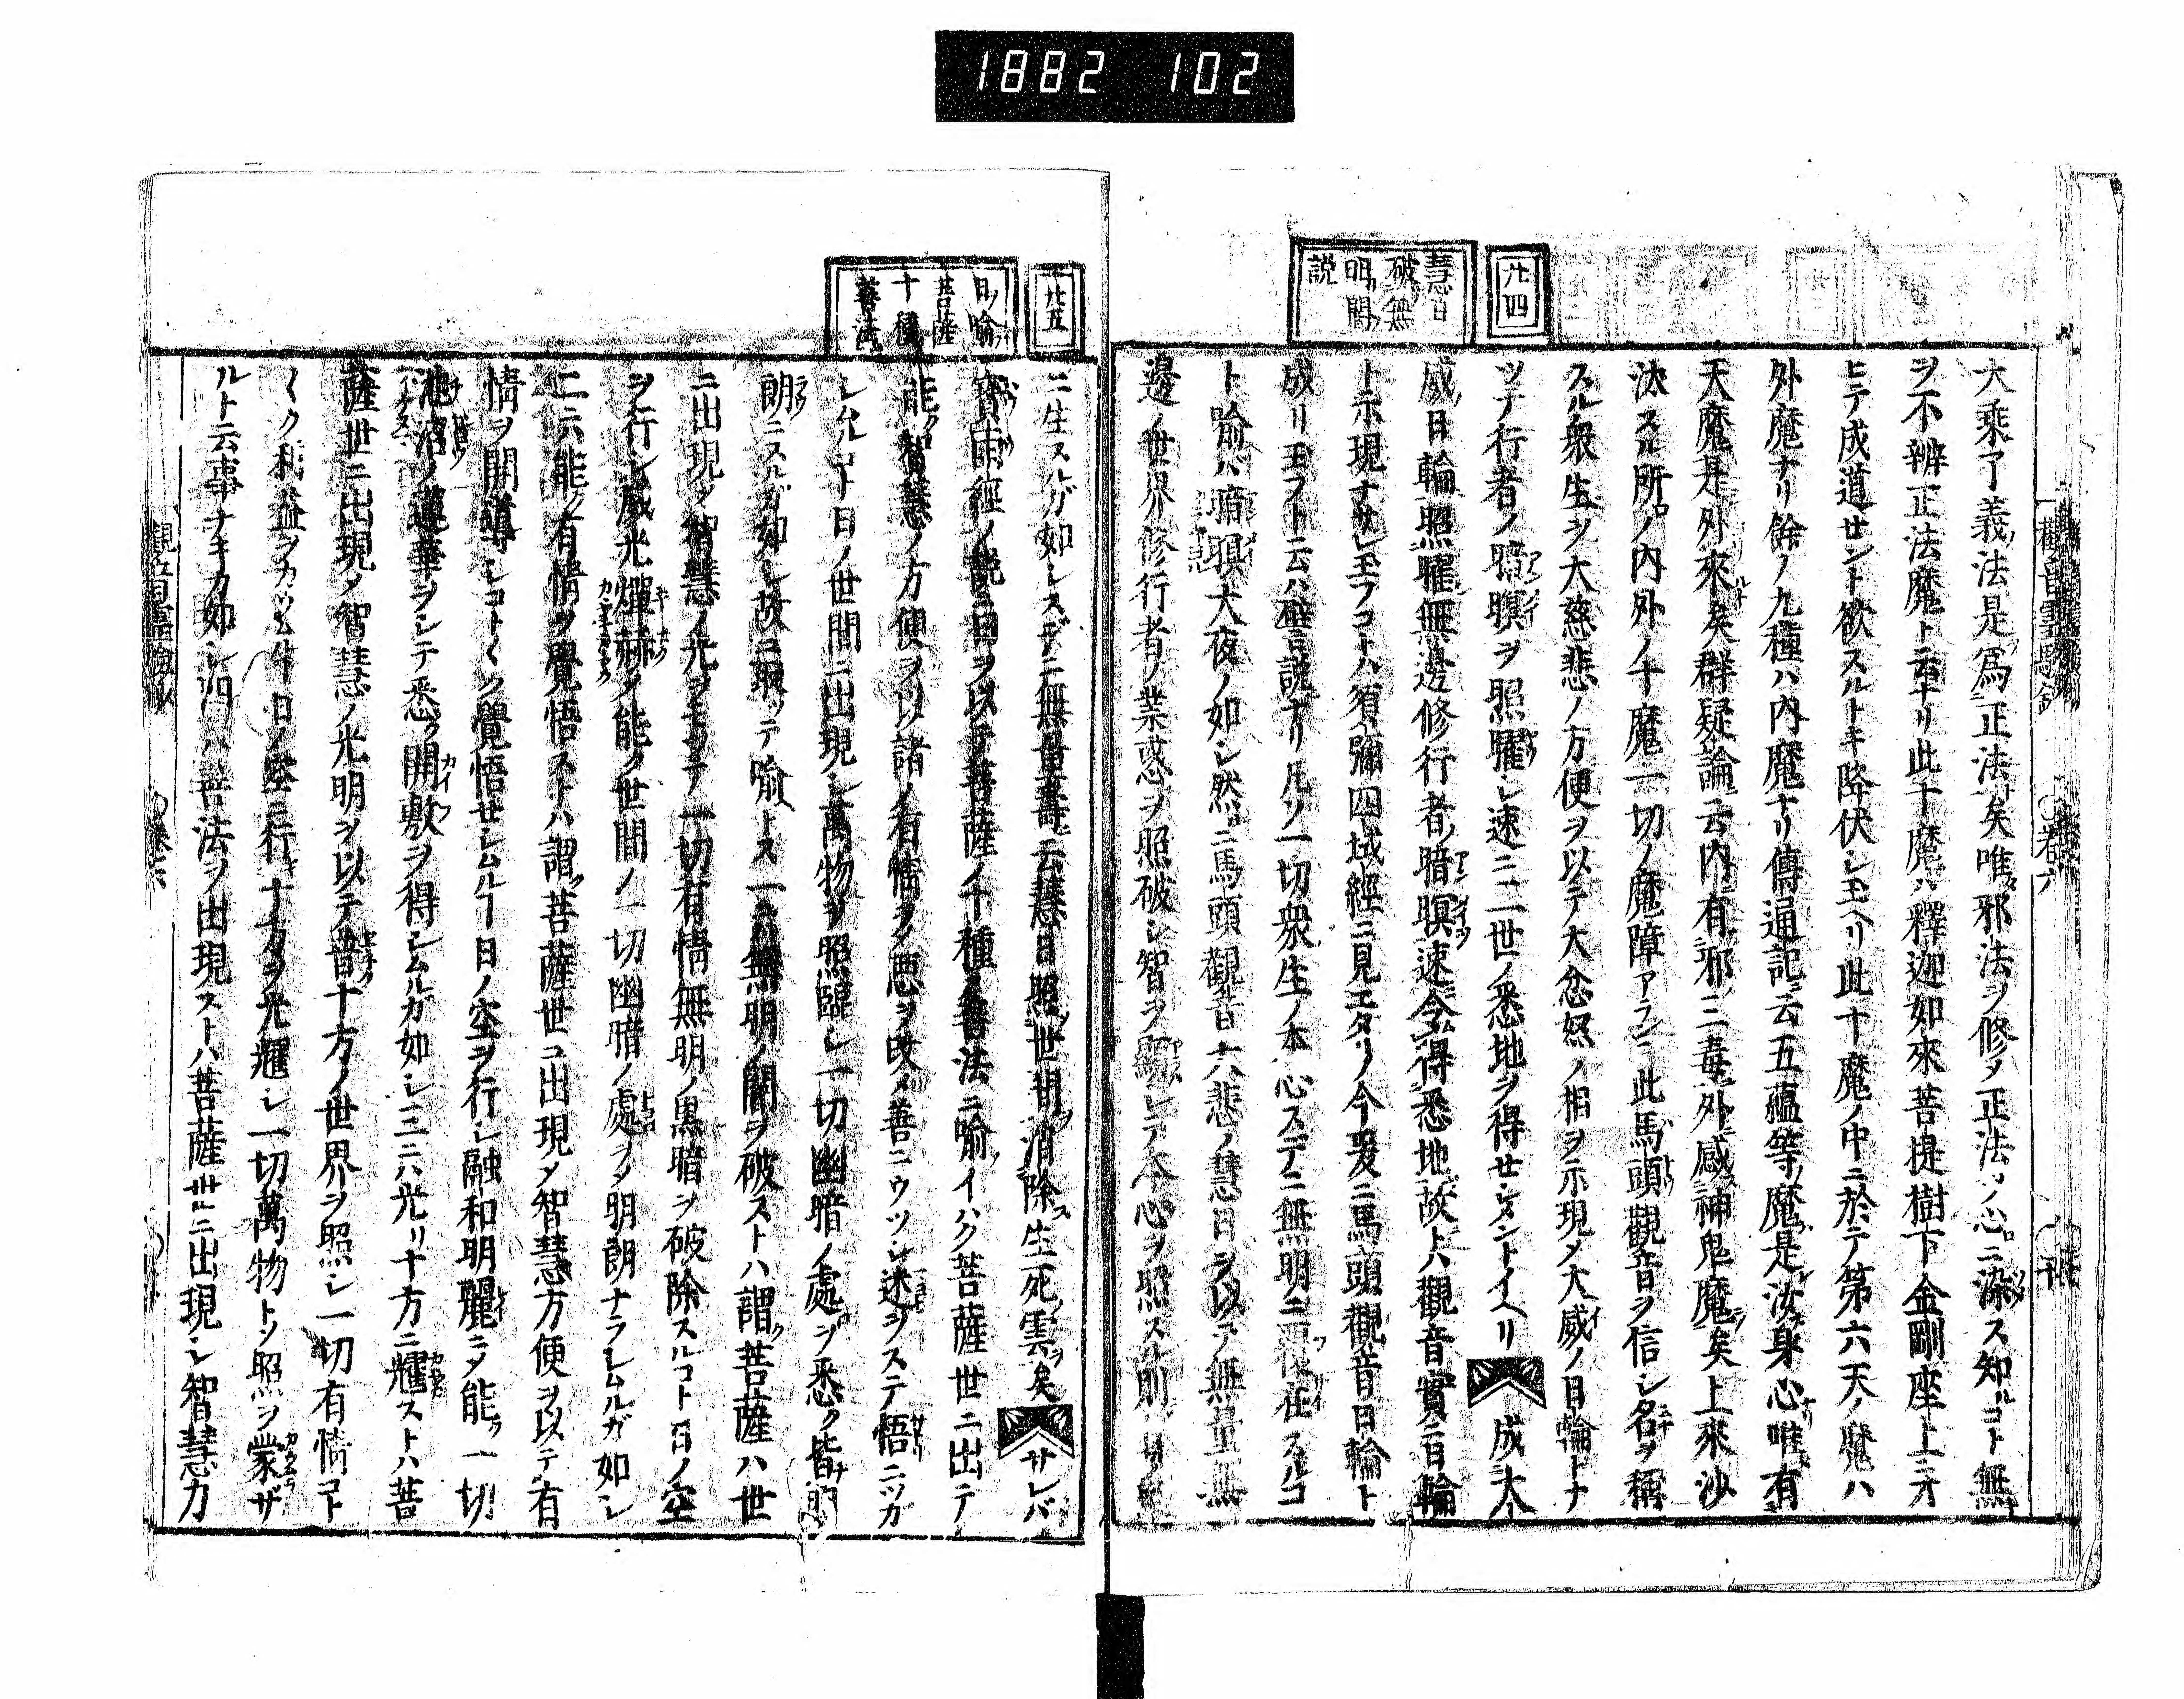 1882 102
廿四
慧日
破無
明闇
説
大乗了義法是爲正法矣唯邪法ヲ修メ正法ノ心ニ染ス知ルコト無
ヲ不辨正法魔ト云ナリ此十魔ハ釋迦如來菩提樹下金剛座上ニオ
ヒテ成道セント欲スルトキ降伏シ玉ヘリ此十魔ノ中ニ於テ第六天ノ魔ハ
外魔ナリ餘ノ九種ハ内魔ナリ傳通記ニ云五蘊等ノ魔是汝身心唯有
天魔是外來矣群疑論ニ云内有邪三毒外感神鬼魔矣上來沙
汰スル所ノ内外ノ十魔一切ノ魔障アランニ此馬頭觀音ヲ信シ名ヲ稱
スル衆生ヲ大慈悲ノ方便ヲ以テ大忿怒ノ相ヲ示現メ大威ノ日輪トナ
ツテ行者ノ暗瞑ヲ照曜シ速ニ二世ノ悉地ヲ得セシメントイヘリ 成大
威日輪照曜無邊修行者ノ暗瞑速令得悉地故トハ觀音實ニ日輪
ト示現ナサレ玉フコトハ須彌四域經ニ見エタリ今爰ニ馬頭觀音日輪ト
成リ玉フト云ハ譬説ナリ凡ソ一切衆生ノ本心スデニ無明ニ在スルコ
ト喩ハ瞑大夜ノ如シ然ニ馬頭觀音大悲ノ慧日ヲ以テ無量無
邊ノ世界修行者ノ業惑ヲ照破シ智ヲ顯シテ本心ヲ照ス則日
觀音靈驗鈔 卷六
廿五
日喩
菩薩
十種
善法
ニ生スルガ如シスデニ無量壽ニ云慧日照世間消除生死雲矣 サレバ
寶雨經ノ説ニ日ヲ以テ菩薩ノ十種ノ善法ニ喩イハク菩薩世ニ出テ
能智慧ノ方便ヲ以諸ノ有情ノ悪ヲ改メ善ニウツシ迷ヲステ悟ニツカ
シムルコト日ノ世間ニ出現シ萬物ヲ照臨シ一切幽暗ノ處ヲ悉ク皆明
朗ニスルガ如シ故ニ取ツテ喩トス一ニハ無明ノ闇ヲ破ストハ謂ク菩薩ハ世
ニ出現メ智慧ノ光ヲモツテ一切有情無明ノ黒暗ヲ破除スルコト日ノ空
ヲ行シ威光燀赫メ能ク世間ノ一切幽暗ノ處ヲメ明朗ナラシムルガ如シ
二ニハ能ク有情ヲ覺悟ストハ謂ク菩薩世ニ出現メ智慧方便ヲ以テ有
情ヲ開導シコトく覺悟セシムルコト日ノ空ヲ行シ融和明麗ニメ能ク一切
池沼ノ蓮華ヲシテ悉ク開敷ヲ得シムルガ如シ三ニハ光リ十方ニ耀ストハ菩
薩世ニ出現メ智慧ノ光明ヲ以テ普十方ノ世界ヲ照シ一切有情コト
くク利益ヲカウムルコト日ノ空ニ行キ十方ヲ光耀シ一切萬物トソ照ヲ蒙ザ
ルト云事ナキカ如シ四ハ善法ヲ出現ストハ菩薩世ニ出現シ智慧力
觀音靈驗鈔 卷六